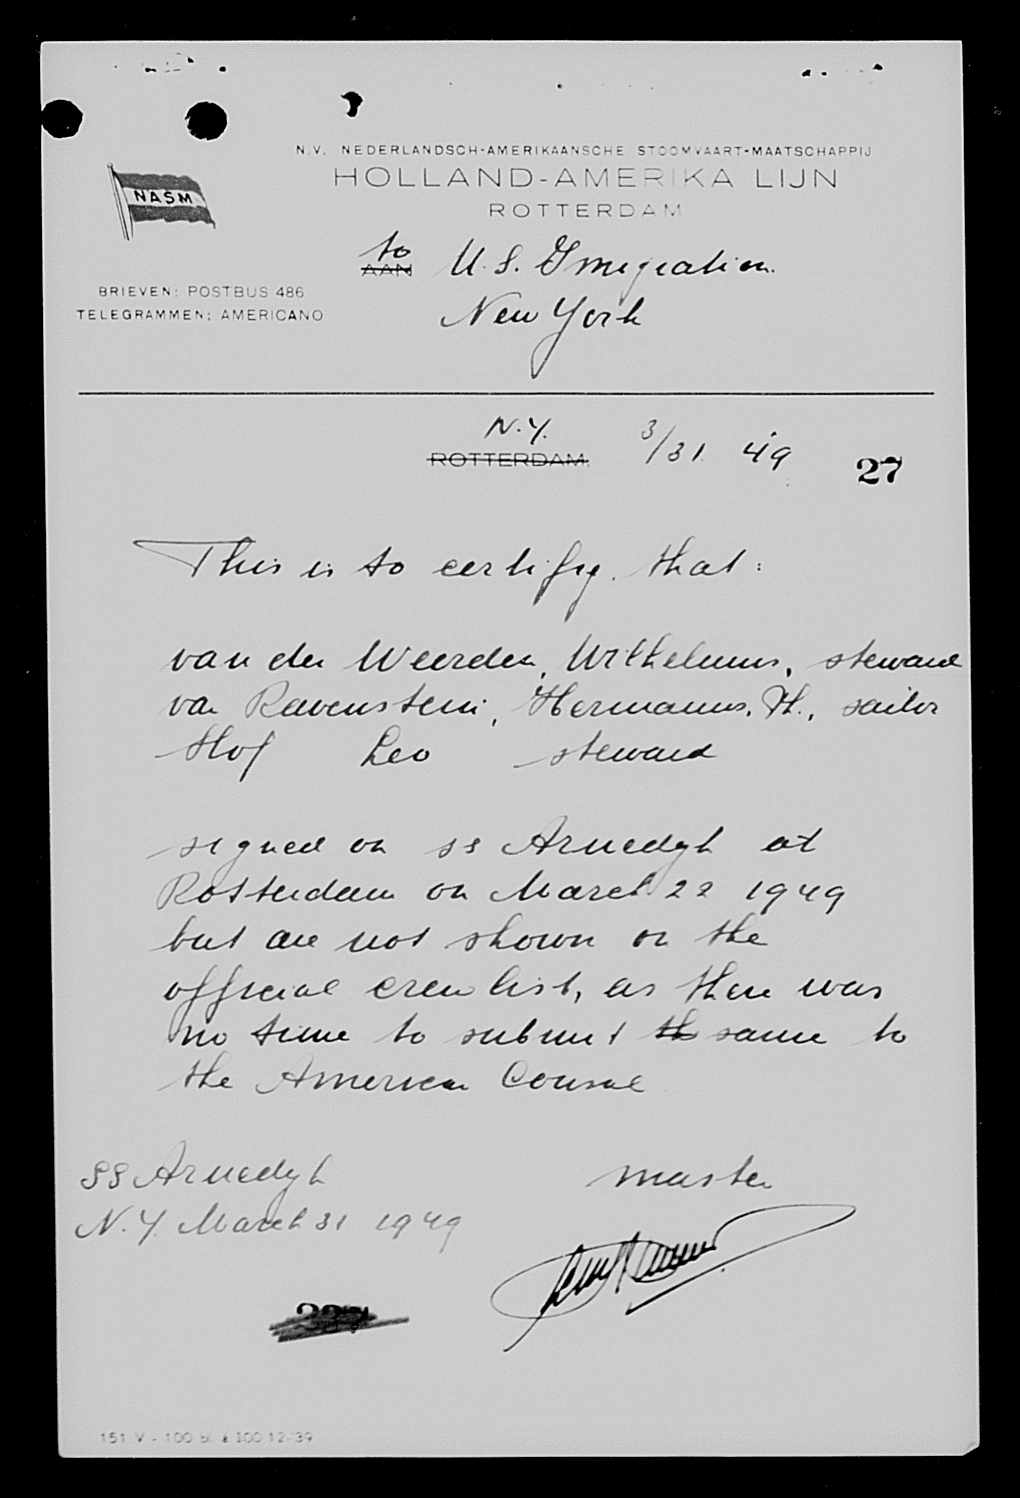 N.V. NEDERLANDSCH-AMERIKAANSCHE STOOMVAART-MAATSCHAPPIJ
HOLLAND-AMERIKA LIJN
ROTTERDAM
NASM
to
AAN U.S. Immigration
New York
BRIEVEN: POSTBUS 486
TELEGRAMMEN: AMERICANO
N.Y.
ROTTERDAM 3/31 49
27
This is to certify that:
van der Weerden, Wilhelmus, steward
van Ravenstein, Hermanus, H., sailor
Hof Leo steward
signed on ss Arnedyk at
Rotterdam on March 22 1949
but are not shown on the
official crew list, as there was
no time to submit th same to
the American Consul
SS Arnedyk master
N.Y. March 31 1949
151 V - 100 bl. à 100 12-'39